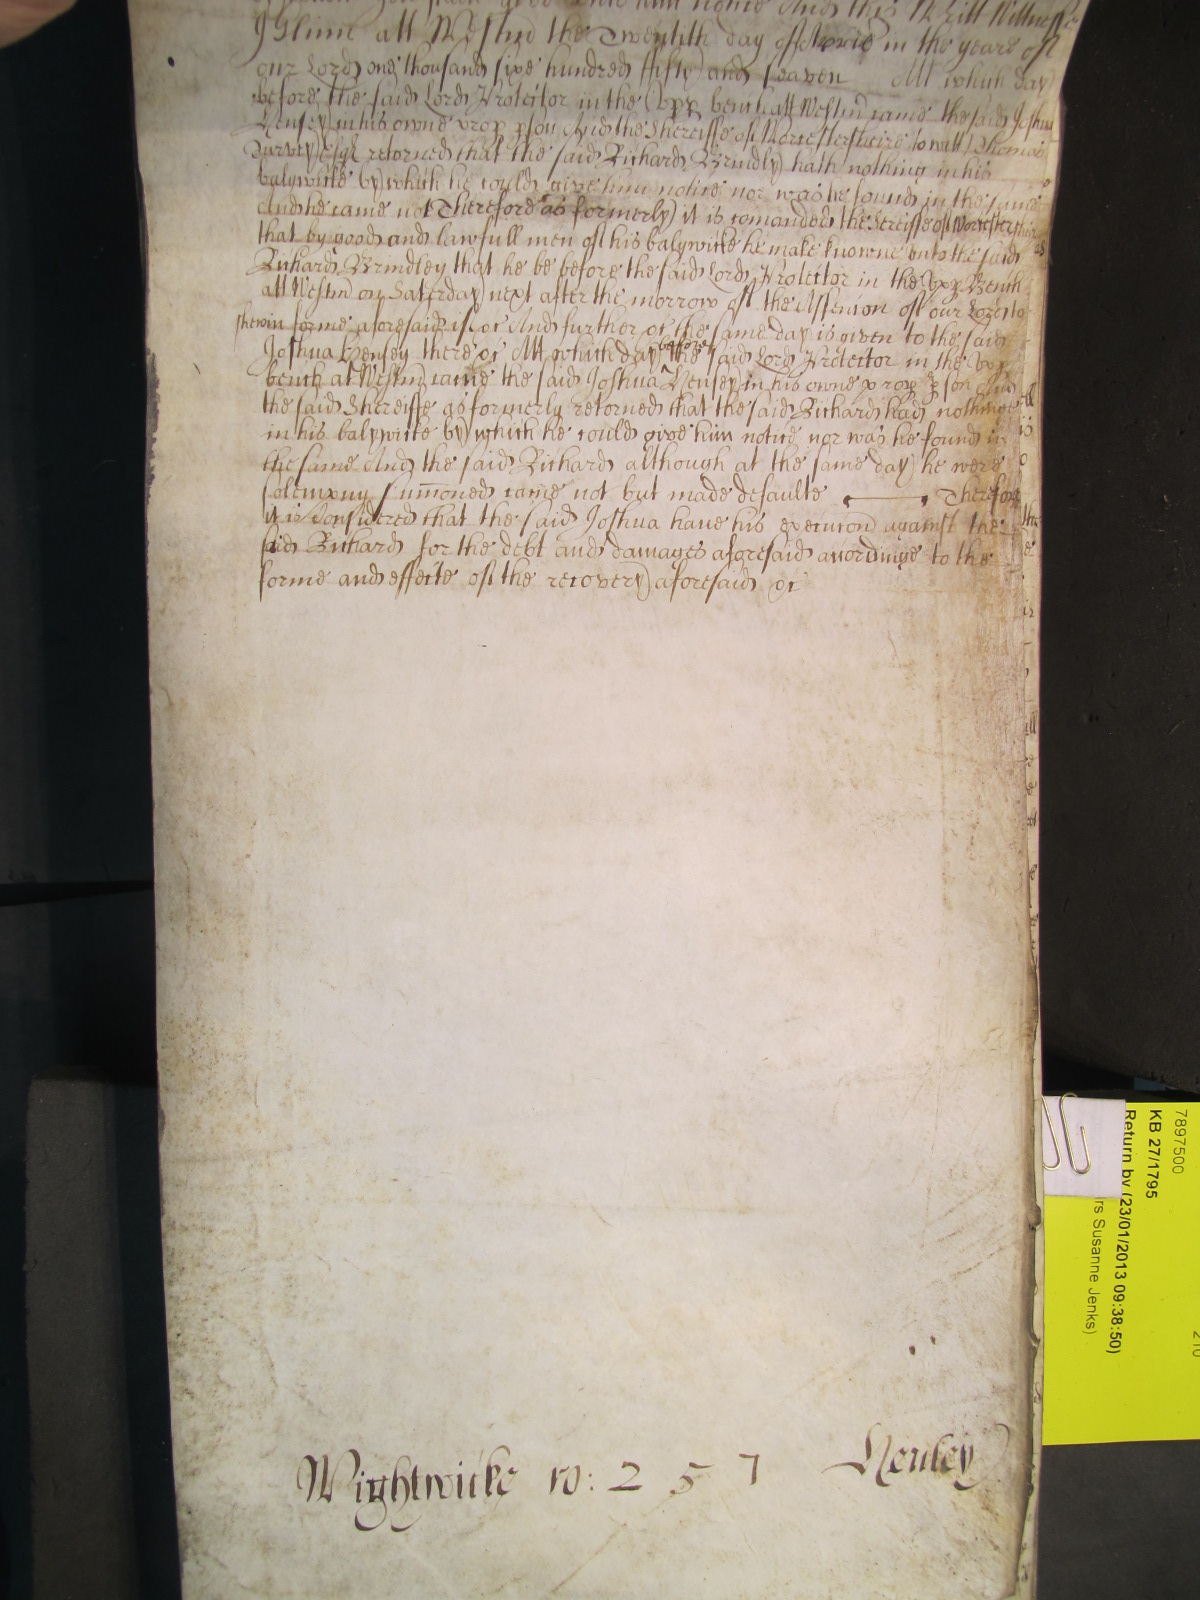 him notice And this Writt Wittnesse
J Glinn att Westm the Twentith day of in the yeare of
our Lord one thousand sixe hundred fifty and seaven Att which day
before the said Lord Protector in the Upp bench att Westm came the said Joshua
Hensey in his owne prop pson And the Shereiffe of Worcestershire to witt Thomas
esqr retorned that the said Richard Brindly hath nothing in his
balywicke by which he could give him notice nor was he found in the same
And he came not Therefore as formerly it is comanded the Sereiffe of Worcestershire
that by good and lawfull men of his balywicke he make knowne unto the said
Richard Brindley that he be before the said Lord Protector in the Upp Bench
att Westm on Saturday next after the morrow of the Assention of our Lord to
shew in forme aforesaid if &c And further &c the same day is given to the said
Joshua Hensey there &c Att which day before the said Lord Protector in the Upp
bench at Westm came the said Joshua Hensey in his owne prop pson And
the said Shereiffe as formerly retorned that the said Richard had nothinge
in his balywicke by which he could give him notice nor was he found in
the same And the said Richard although at the same day he were
solempny sumoned came not but made defaulte Therefore
it is Considered that the said Joshua have his execucion against the
said Richard for the debt and damages aforesaid accordinge to the
forme and effecte of the recovery aforesaid &c
Wightwicke ro: 2 5 7 Henley
7897500
KB 27/1795
Return by (23/01/2013 09:38:50)
rs Susanne Jenks)
210